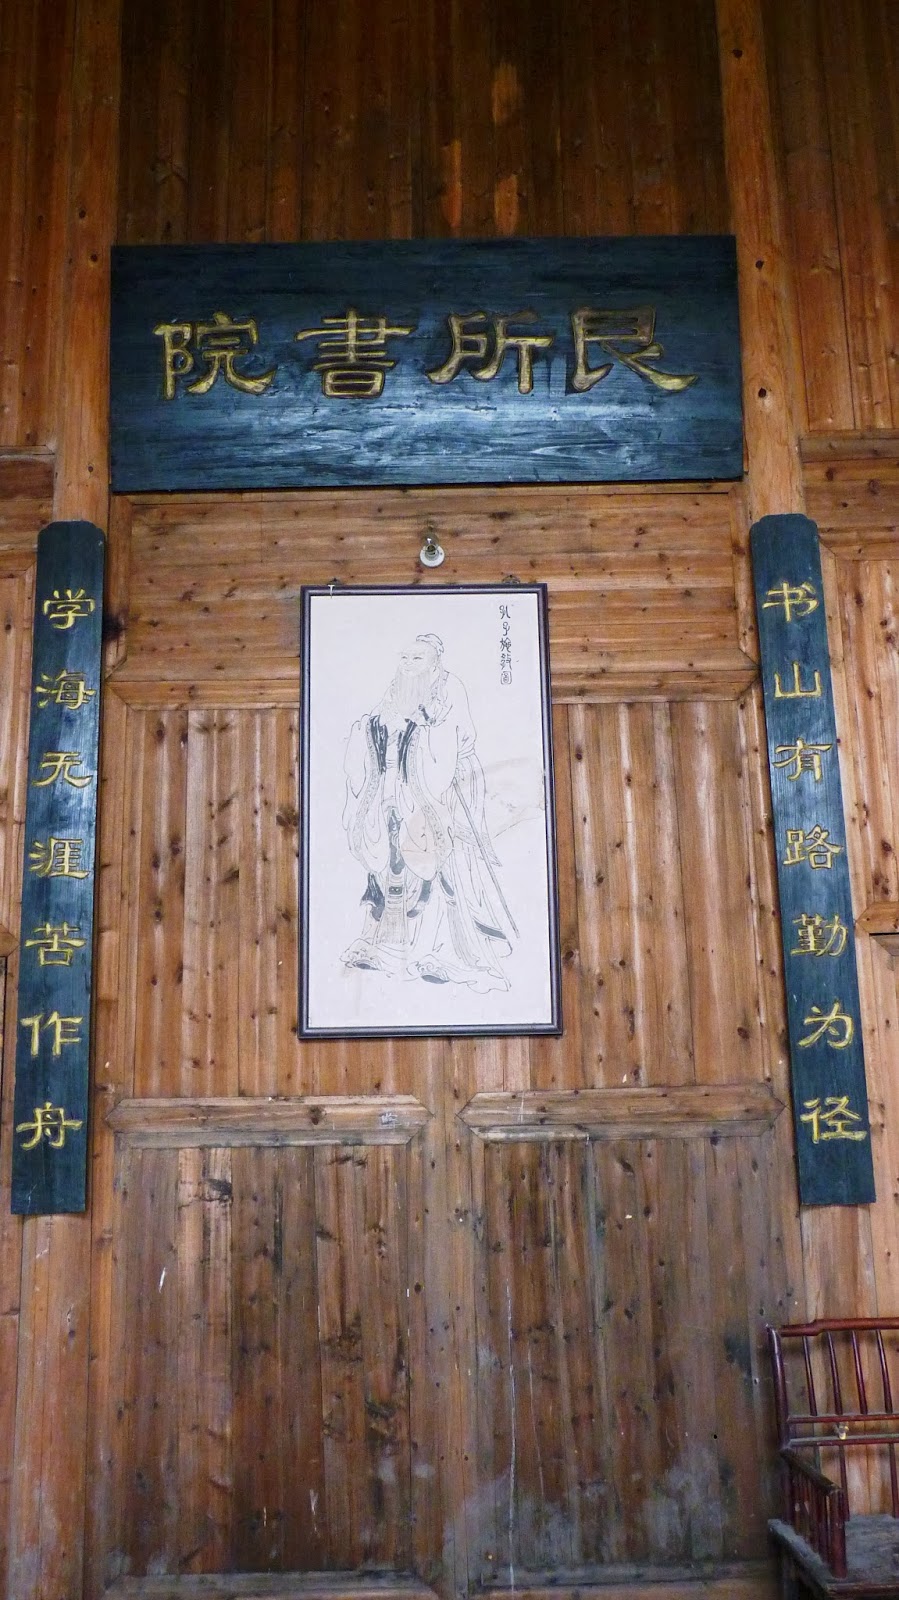 艮所書院
书山有路勤为径
学海无涯苦作舟
孔子施教圖